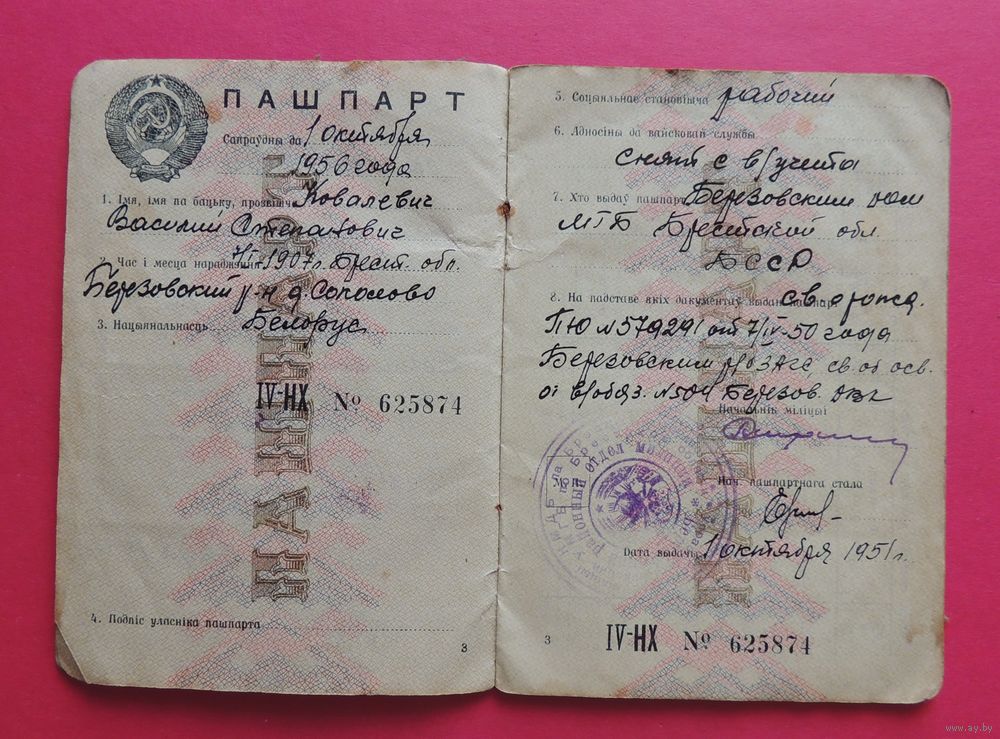 ПАШПАРТ
Сапраўдны да 1 октября
1956 года
1. Імя, імя па бацьку, прозвішча Ковалевич
Василий Степанович
2. Час і месца нараджэння 7/I-1907г. Брест. обл.
Березовский р-н д. Соколово
3. Нацыянальнасць Белорус
IV-НХ № 625874
4. Подпіс уласніка пашпарта
3
5. Соцыяльнае становішча рабочий
6. Адносіны да вайсковай службы
снят с в/учета
7. Хто выдаў пашпарт Березовским
МГБ Брестской обл.
БССР
8. На падставе якіх дакументаў выдан пашпарт св. о рожд.
ПЮ №579291 от 7/IV-50 года
Березовским розагс, св. об осв.
от в/обяз. №504 Березов.
Начальнік міліцыі
Нач. пашпартнага стала
районный отдел милиции
Дата выдачы 1 октября 1951г.
3
IV-НХ № 625874
www.ay.by